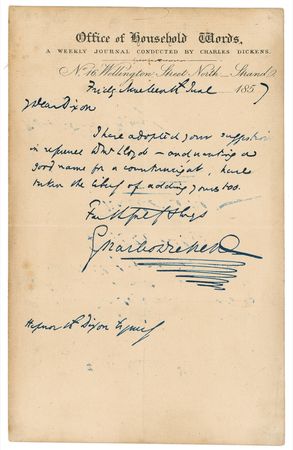 Office of Household Words,
A WEEKLY JOURNAL CONDUCTED BY CHARLES DICKENS.
No. 16, Wellington Street North, Strand.
Friday Nineteenth June 1857
My dear Dixon
I have adopted your suggestion
in reference Lloyd – and wanting a
good name for a counterweight, have
taken the liberty of adding yours too.
Faithfully Yours
Charles Dickens
Hepworth Dixon Esquire